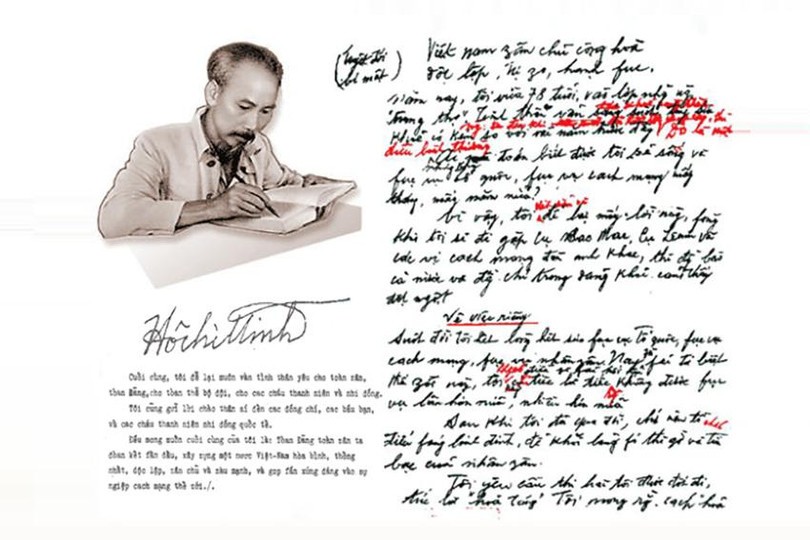 Hồ Chí Minh
Cuối cùng, tôi để lại muôn vàn tình thân yêu cho toàn zân,
toàn Đảng, cho toàn thể bộ đội, cho các cháu thanh niên và nhi đồng.
Tôi cũng gửi lời chào thân ái đến các đồng chí, các bầu bạn,
và các cháu thanh niên nhi đồng quốc tế.
Điều mong muốn cuối cùng của tôi là: Toàn Đảng toàn zân ta
đoàn kết fấn đấu, xây zựng một nước Việt-Nam hòa bình, thống
nhất, độc lập, zân chủ và zàu mạnh, và góp fần xứng đáng vào sự
ngiệp cách mạng thế zới./.
(tuyệt đối
bí mật)
Việt nam zân chủ cộng hoà
độc lập, tự zo, hạnh fúc.
Năm nay, tôi vừa 78 tuổi, vào lớp những người
"trung thọ". Tinh thần vẫn
điều bình thường
toàn biết được tôi sẽ sống và
fục vụ tổ quốc, fục vụ cách mạng mấy
tháng, mấy năm nữa?
Vì vậy, tôi để lại mấy lời này, fòng
khi tôi sẽ đi gặp cụ Các Mác, cụ Lênin và
các vị cách mạng đàn anh khác, thì đồng bào
cả nước và đồng chí trong đảng khỏi cảm thấy
đột ngột
Về việc riêng
Suốt đời tôi hết lòng hết sức fục vụ Tổ quốc, fục vụ
cách mạng, fục vụ nhân zân. Nay fải từ biệt
thế zới này, tôi tiếc là tiếc không được fục
vụ lâu hơn nữa, nhiều hơn nữa
Sau khi tôi đã qua đời, chớ nên tổ chức
điếu fúng linh đình, để khỏi lãng fí thì zờ và tiền
bạc của nhân zân.
Tôi yêu cầu thi hài tôi được đốt đi,
tức là "hoả táng". Tôi mong rằng cách hoả